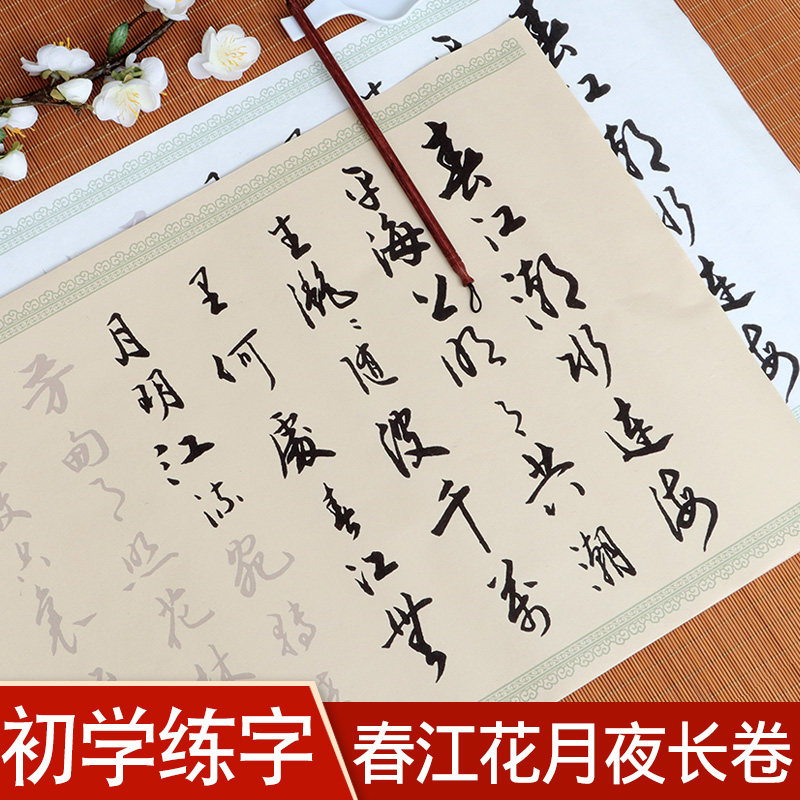 春江潮水连海
平海上明月共潮
生滟〻随波千万
里何處春江無
月明江流宛转
芳甸月照花林
春江潮水连海
平
初学练字
春江花月夜长卷